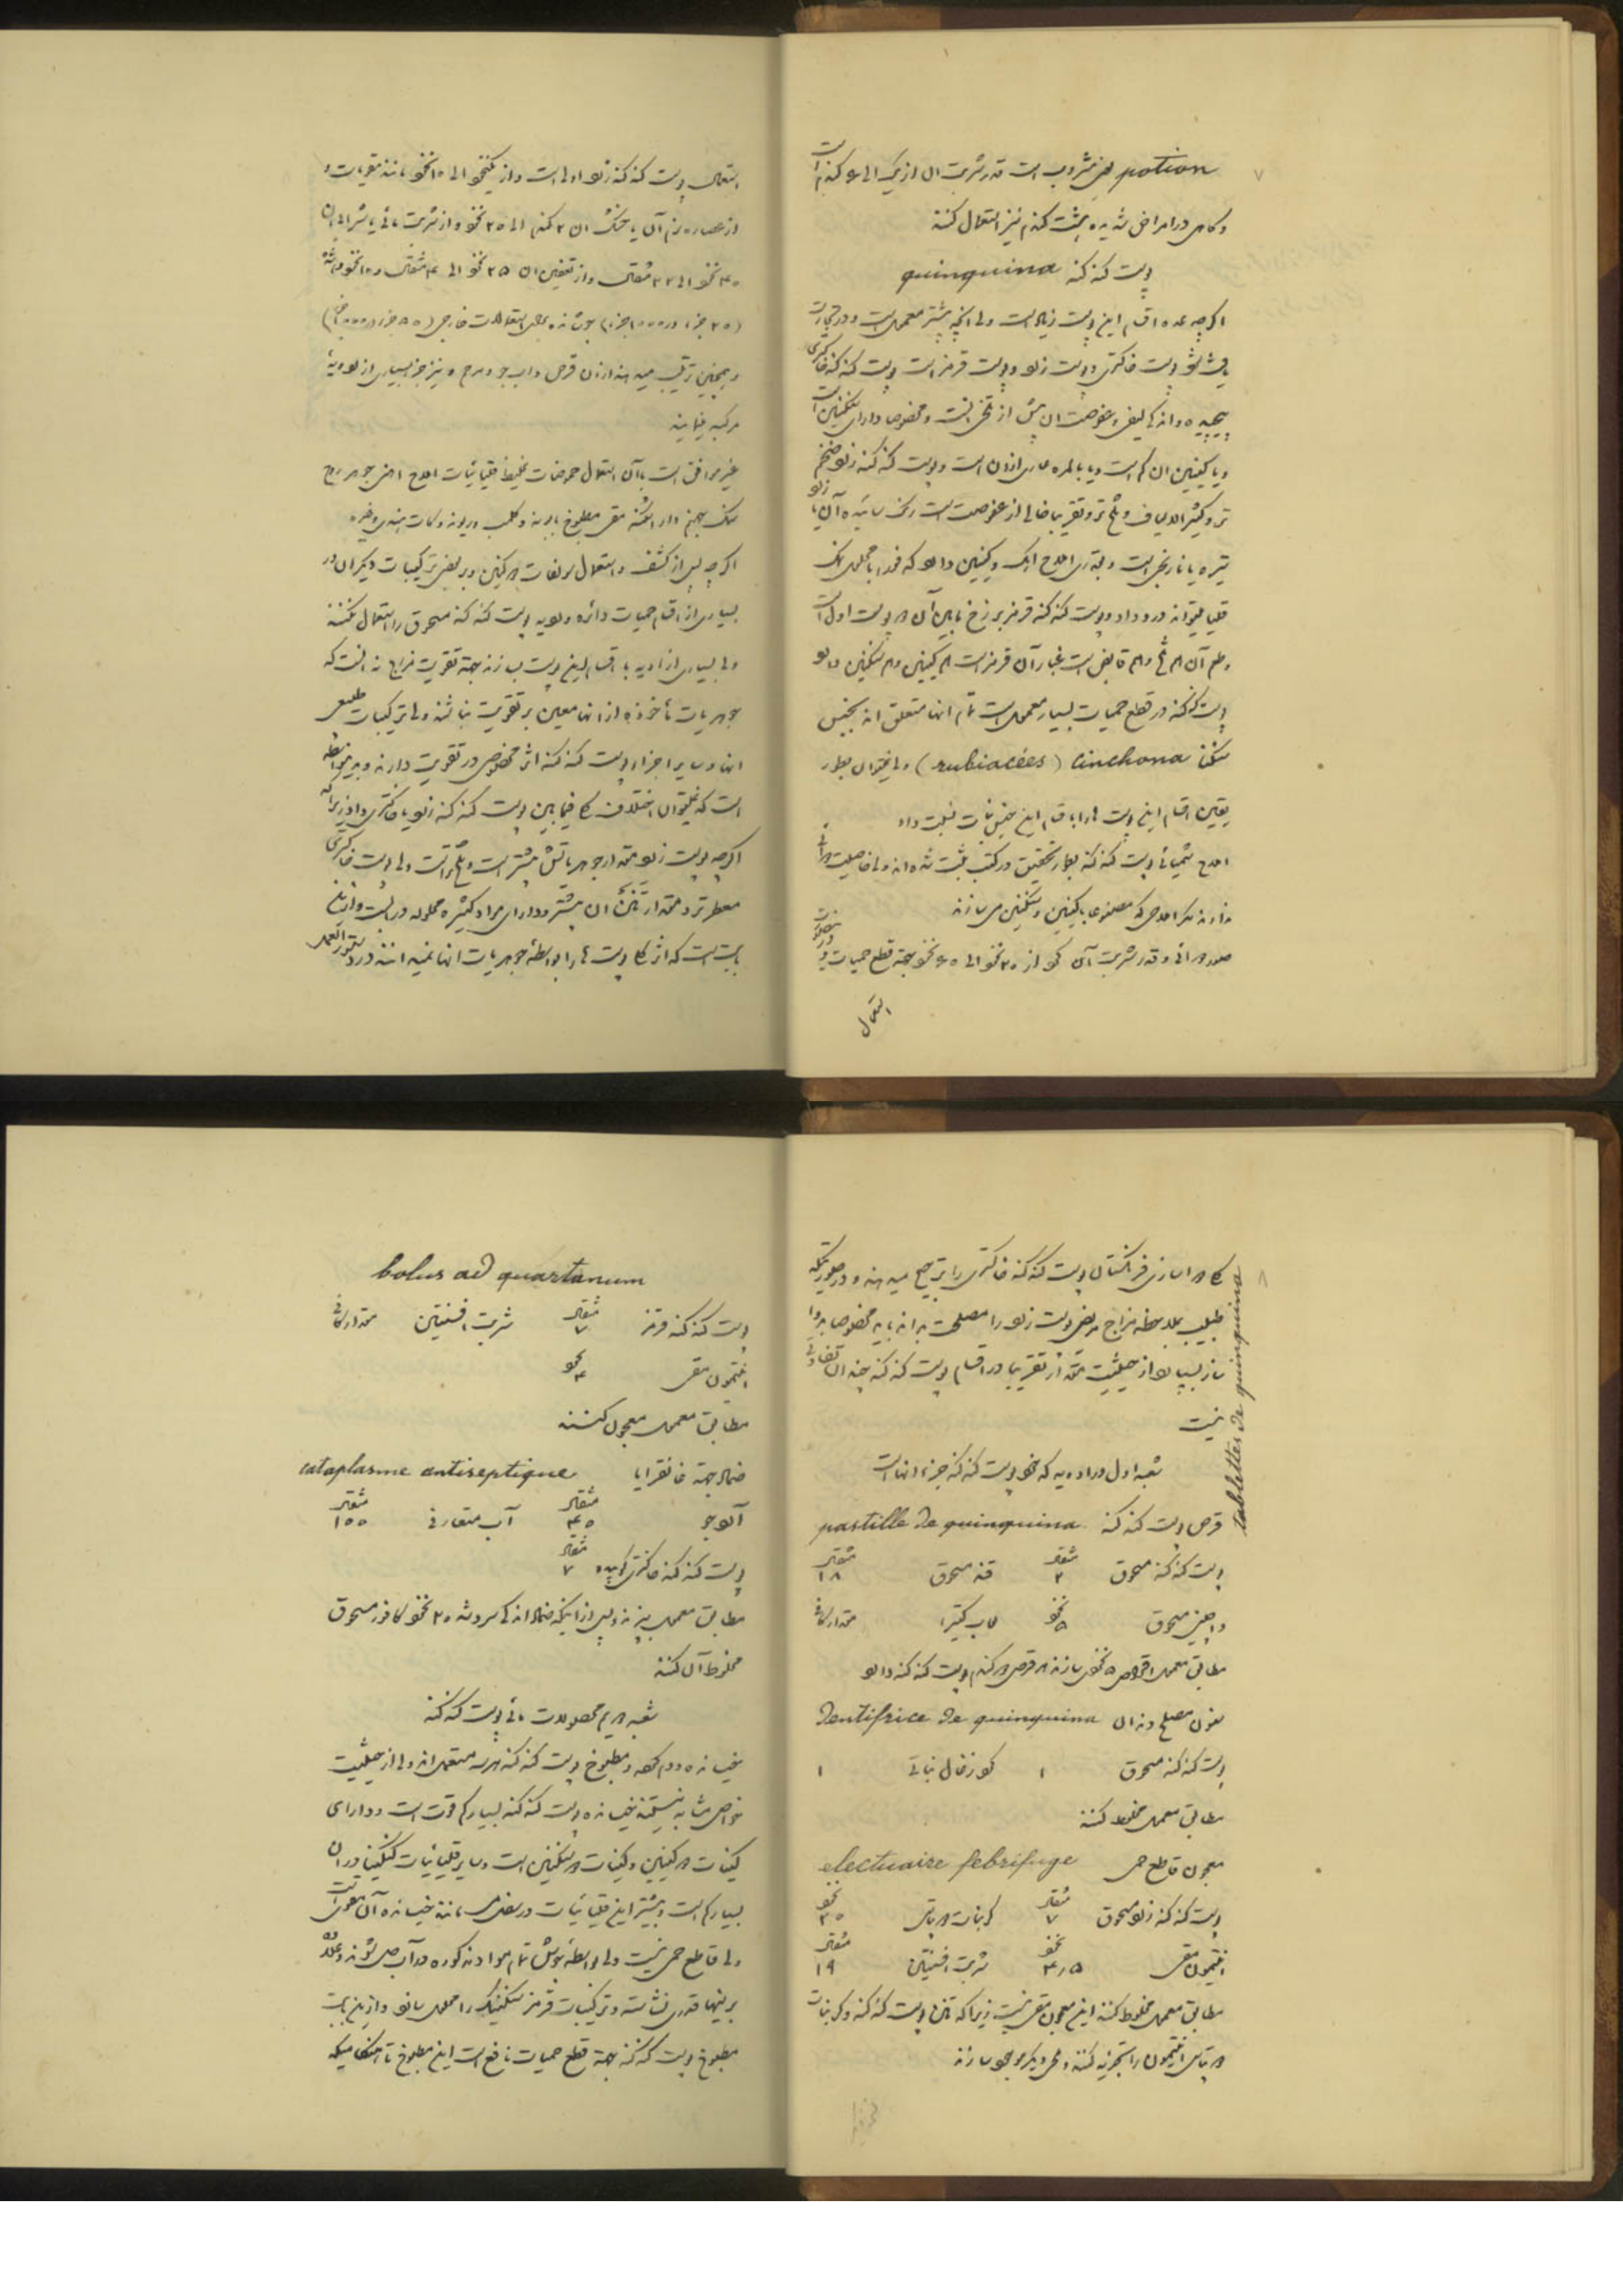 ۷
potion یعنی مشروب است قدر شربت ان از یک الی ۶ گندم است
و گاهی در امراض شدیده بیشت گندم نیز استعمال کنند
پوست گنه گنه quinquina
اگرچه عده اقسام این پوست زیاد است ولی آنچه بیشتر معمول است و در تجارت
یافت شود پوست خاکستری و پوست زرد و پوست قرمز است پوست گنه گنه خاکستری
پیچیده و اندکی لیفی و عفوصت ان بیش از تلخی انست و مخصوصا دارای سنکنین است
و یا کینین ان کم است و یا بالمره عاری از ان است و پوست گنه گنه زرد ضخیم
تر و کثیرالالیاف و تلخ تر و تقریبا خالی از عفوصت است رنگ سائیده آن زرد
تیره یا نارنجی است و بقدری املاح آهک و کینین دارد که فورا با محلول نمک
قلیا میتواند درد داد و پوست گنه گنه قرمز برزخ مابین آن دو پوست اول است
و طعم آن هم تلخ و هم قابض است غبار آن قرمز است هم کینین و هم سنکنین دارد
پوست گنه گنه در قطع حمیات بسیار معمول است تمام انها متعلق اند بجنس
سنکنا cinchona (rubiacées) ولی نمیتوان بطور
یقین اقسام این پوست ها را باقسام این جنس نبات نسبت داد
املاح شیمیائی پوست گنه گنه بطور تحقیق در کتب ثبت شده اند ولی خاصیت دوائی
ندارند مگر املاحی که مصنوعا با کینین و سنکنین می سازند
صور دوائی و قدر شربت آن گرد از ۲۰ نخود الی ۶۰ نخود بجهة قطع حمیات و در صورت
استعمال
استعمال پوست گنه گنه زرد اولی است و از یکنخود الی ۱۵ نخود مانند مقویات و
از عصاره نرم آن یا خشک ان ۲ گندم الی ۲۵ نخود و از شربت مائی یا شرابی ان
۴۰ نخود الی ۲۲ مثقال و از تنقین ان ۲۵ نخود الی ۴ مثقال و ۱۰ نخود
(۲۵ جزء در ۱۰۰۰ جزء) جوشانده بجهة استعمالات خارجی (۸۵ جزء در ۱۰۰۰ جزء)
و همچنین ترتیب میدهند از ان قرص و اب جو و مرهم و نیز جزء بسیاری از ادویه
مرکبه میباشد
غیر موافق است با آن استعمال حموضات غلیظ قلیائیات املاح آهن جوهر روح
نمک جهنم دار اشکنه مقی مطبوخ بابونه و کلمب و ریوند و کات هندی و غیره
اگرچه پس از کشف و استعمال سولفات دو کینین و بعضی ترکیبات دیگر ان در
بسیاری از اقسام حمیات دائره و لوبیه پوست گنه گنه مسحوق را استعمال نکنند
ولی بسیاری از ادویه با اقسام این پوست سازند بجهة تقویت مزاج
جوهریات ماخوذه از انها معین بر تقویت نباشند ولی ترکیبات طبیعی
انها و سایر اجزاء پوست گنه گنه اثر مخصوصی در تقویت دارند و بهمین واسطه
است که نمیتوان اختلاف کلی فیمابین پوست گنه گنه زرد یا خاکستری داد زیرا که
اگرچه پوست زرد مقدار جوهریاتش بیشتر است و تلخ تر است ولی پوست خاکستری
معطرتر و مقدار تنن ان بیشتر و دارای مواد کثیره محلوله در آب است و از این
بابت است که اثر کل پوست ها را بواسطه جوهریات انها نمیدانند در دستورالعمل
۸
کلا دواسازی فرانکستان پوست گنه گنه خاکستری را ترجیح میدهند و در صورتیکه
طبیب بملاحظه مزاج مریض پوست زرد را مصلحت بداند باید مخصوصا
سازد بسیارند از حیثیت مقدار تقریبا در اقسام پوست گنه گنه چندان تفاوتی
نیست
tablettes de quinquina
شعبه اول در ادویه که خود پوست گنه گنه جزء انها است
قرص پوست گنه گنه pastille de quinquina
پوست گنه گنه مسحوق مثقال ۲ قند مسحوق مثقال ۱۸
دارچین مسحوق نخود ۵ لعاب کتیرا مقدار کافی
مطابق معمول اقراص ۵ نخودی سازند هر قرص دو گندم پوست گنه گنه دارد
سنون مصلح دندان dentifrice de quinquina
پوست گنه گنه مسحوق ۱ گرد زغال نباتی ۱
مطابق معمول مخلوط کنند
معجون قاطع حمی electuaire febrifuge
پوست گنه گنه زرد مسحوق مثقال ۷ کربنات دو پتاس نخود ۲۰
افتیمون مقی نخود ۴٫۵ شربت افسنتین مثقال ۱۹
مطابق معمول مخلوط کنند این معجون مقی نیست زیرا که تنن پوست گنه گنه و کربنات
دو پتاس افتیمون را تجزیه کنند و ملحی دیگر موجود سازند
bolus ad quartanum
پوست گنه گنه قرمز مثقال ۷ شربت افسنتین مقدار کافی
افتیمون مقی نخود ۴
مطابق معمول معجون کنند
ضماد بجهة غانقرایا cataplasme antiseptique
آلوجو مثقال ۴۵ آب متعارفی مثقال ۱۵۵
پوست گنه گنه خاکستری کوبیده مثقال ۷
مطابق معمول بپزند و پس از اینکه ضماد اندکی سرد شد ۲۰ نخود کافور مسحوق
مخلوط آن کنند
شعبه دویم محصولات مائی پوست گنه گنه
خیسانده و دم کرده و مطبوخ پوست گنه گنه هر سه مستعمل اند ولی از حیثیت
خواص مشابه نیستند خیسانده پوست گنه گنه بسیار کم قوت است و دارای
کینات دو کینین و کینات دو سنکنین است و سایر قلیائیات کنکینا در ان
بسیار کم است و بیشتر این قلیائیات در ثفل می مانند خیسانده آن مقوی است
ولی قاطع حمی نیست ولی بواسطه جوش تمام مواد مذکوره در آب حل شوند و علاوه
بر اینها قدری نشاسته و ترکیبات قرمز سنکنیک را محلول سازد و از این جهت
مطبوخ پوست گنه گنه بجهة قطع حمیات نافع است این مطبوخ تا هنگامیکه